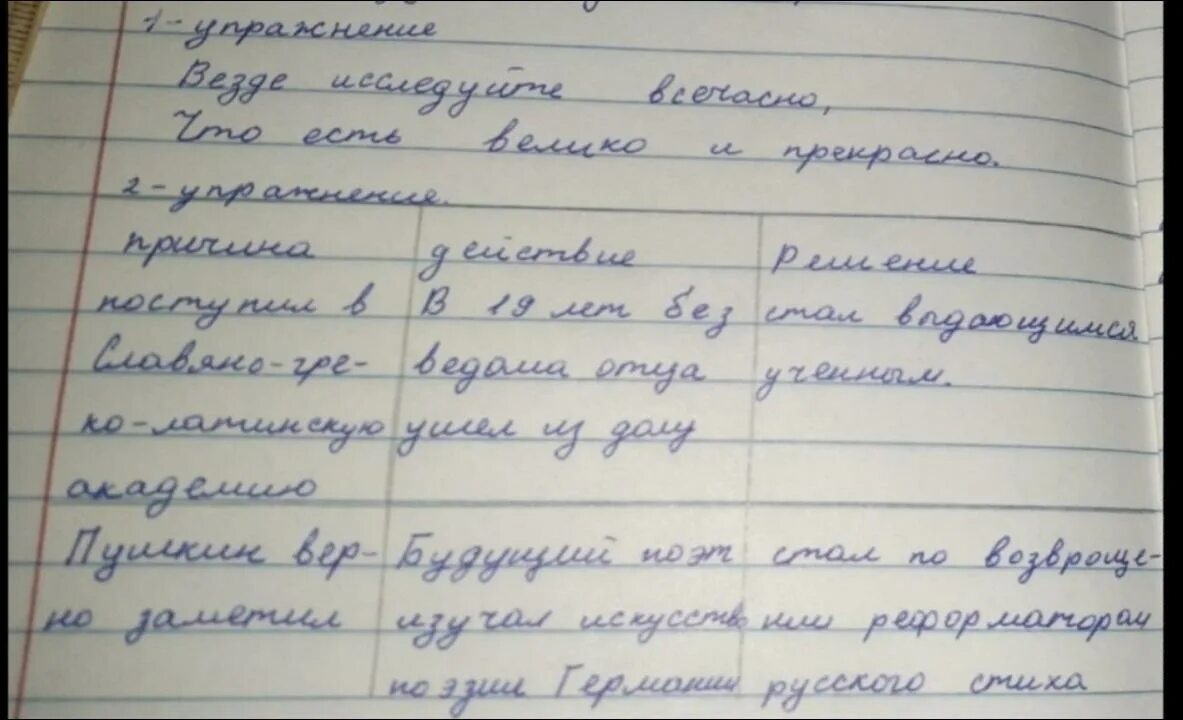 1-упражнение
Везде исследуйте всечасно,
Что есть велико и прекрасно.
2-упражнение.
причина действие Решение
поступил в В 19 лет без стал выдающимся
Славяно-гре- ведома отца ученным.
ко-латинскую ушел из дому
академию
Пушкин вер- Будущий поэт стал по возвроще-
но заметил изучал искусство нии реформатором
поэзии Германии русского стиха